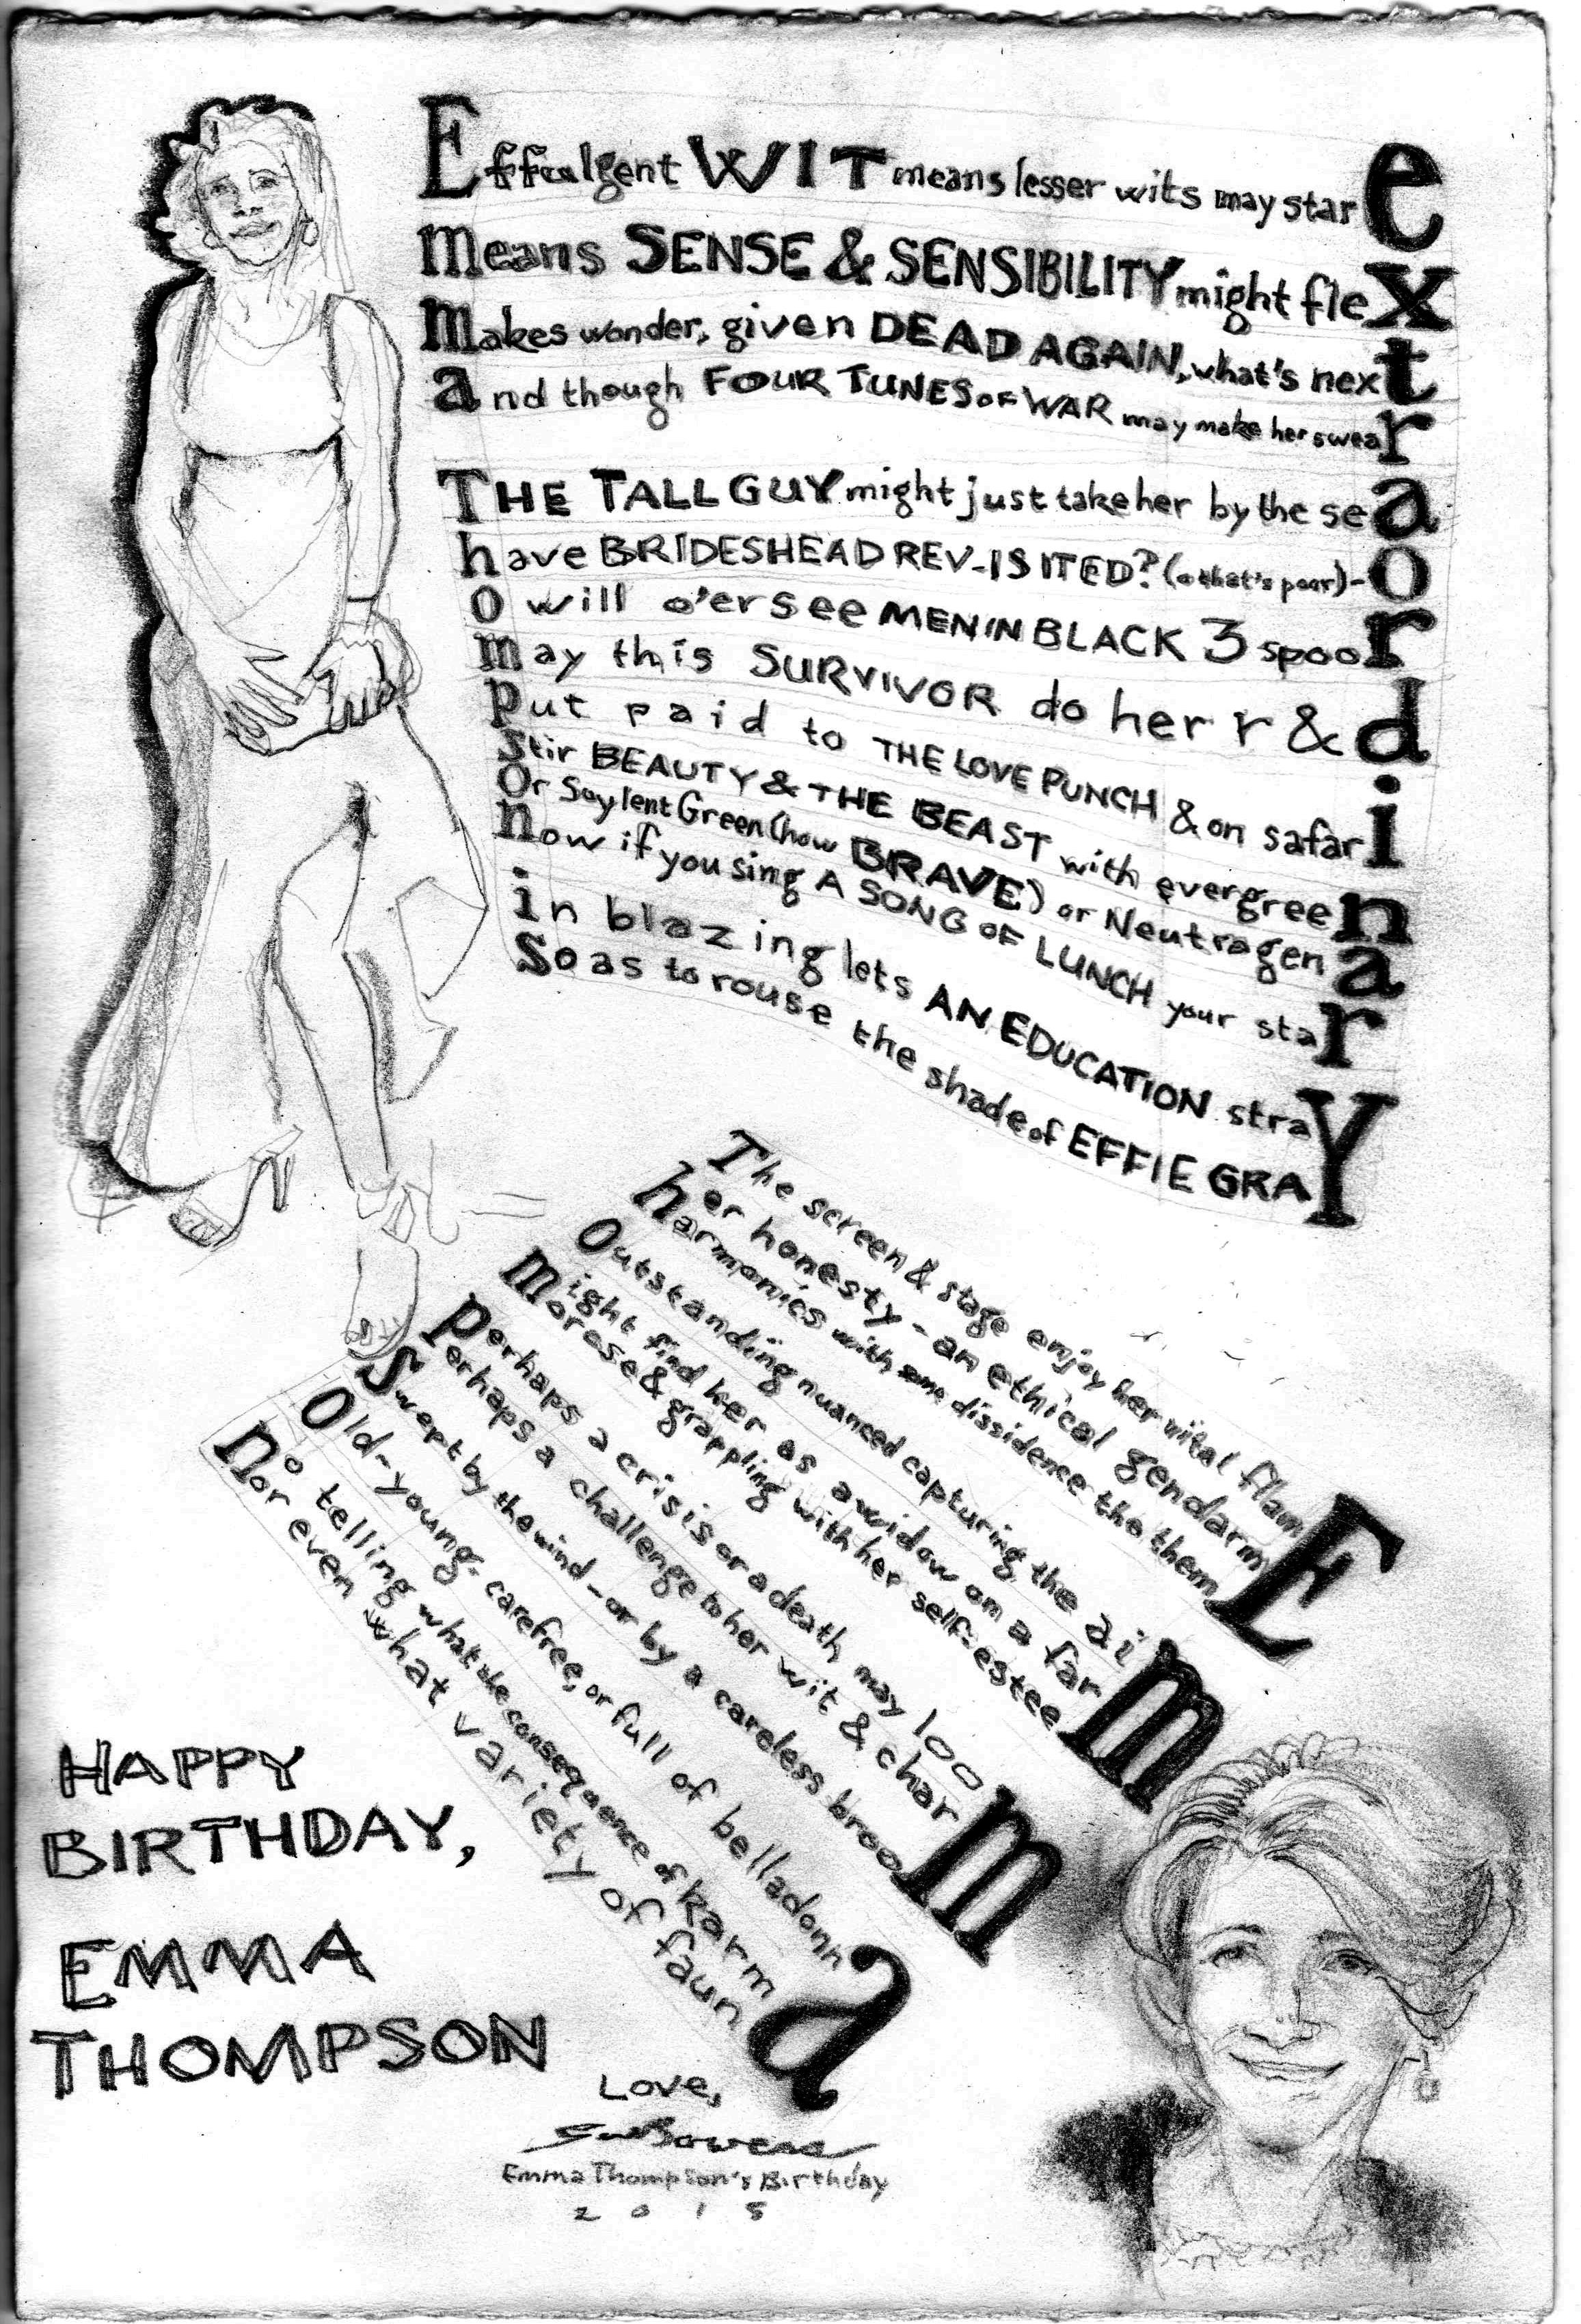 Effulgent WIT means lesser wits may stare
means SENSE & SENSIBILITY might flex
makes wonder, given DEAD AGAIN, what's next
and though FOUR TUNES OF WAR may make her swear
THE TALL GUY might just take her by the sea
have BRIDESHEAD REV-ISITED? (o that's poor)-o
o will o'ersee MEN IN BLACK 3 spoor
may this SURVIVOR do her r & d
put paid to THE LOVE PUNCH & on safari
Stir BEAUTY & THE BEAST with evergreen
Or Soylent Green (how BRAVE) or Neutragena
now if you sing A SONG OF LUNCH your star
in blazing lets AN EDUCATION stray
So as to rouse the shade of EFFIE GRAY
The screen & stage enjoy her vital flamE
her honesty - an ethical gendarmE
harmonies with some dissidence the themE
Outstanding nuanced capturing the aim
might find her as a widow on a farm
morose & grappling with her self-esteem
perhaps a crisis or a death may loom
perhaps a challenge to her wit & charm
Swept by the wind - or by a careless broom
Old-young- carefree, or full of belladonna
no telling what the consequence of karma
nor even what variety of fauna
HAPPY
BIRTHDAY,
EMMA
THOMPSON
Love,
Emma Thompson's Birthday
2015